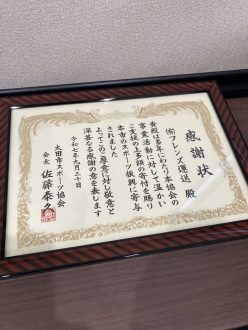 感謝状
㈲フレンズ運送 殿
貴殿は多年にわたり本協会の
事業活動に対して温かい
ご支援の上多額の寄付を賜り
本市のスポーツ振興に寄与
されました
よってこのご厚意に対し敬意と
深甚なる感謝の意を表します
令和七年九月三十日
太田市スポーツ協会
会長 佐藤泰久